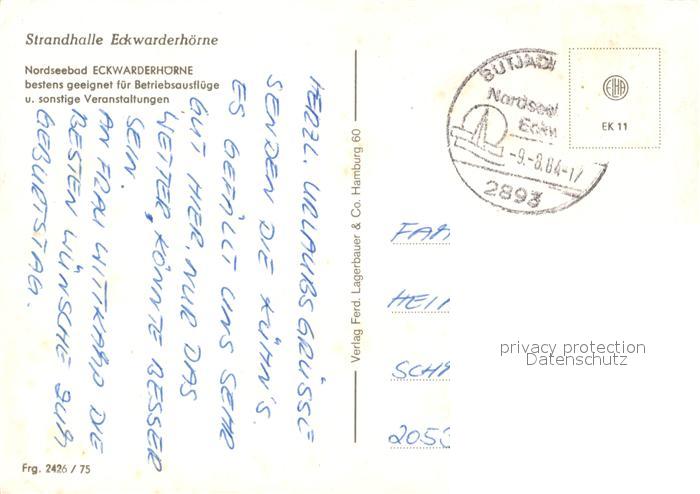 Strandhalle Eckwarderhörne
Nordseebad ECKWARDERHÖRNE
bestens geeignet für Betriebsausflüge
u. sonstige Veranstaltungen
HERZL. URLAUBSGRÜSSE
SENDEN DIE KÜHN'S.
ES GEFÄLLT UNS SEHR
GUT HIER, NUR DAS
WETTER KÖNNTE BESSER
SEIN.
AN FRAU WITTKAMP DIE
BESTEN WÜNSCHE ZUM
GEBURTSTAG.
Frg. 2426 / 75
Verlag Ferd. Lagerbauer & Co. Hamburg 60
BUTJAD
Nordsee
Eckw
-9.-8.84-17
2893
EIHA
EK 11
FAM
HEI
SCH
2053
privacy protection
Datenschutz